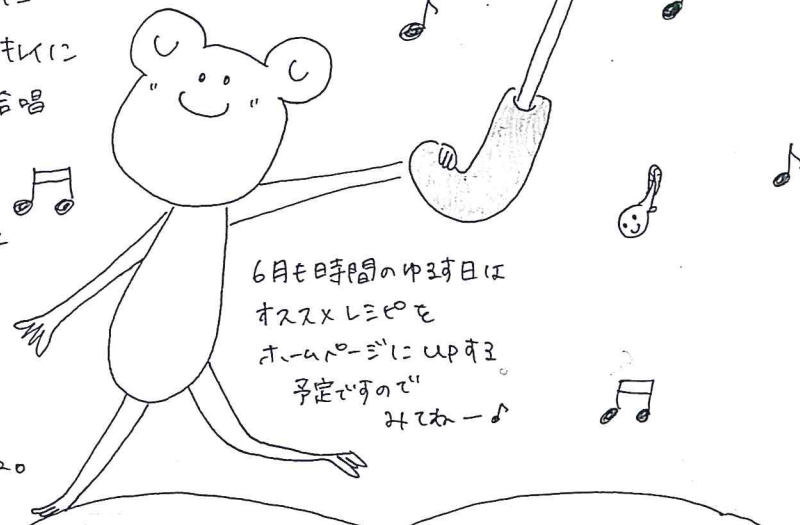 キレイに
合唱
6月も時間のゆるす日は
オススメレシピを
ホームページにupする
予定ですので
みてねー♪